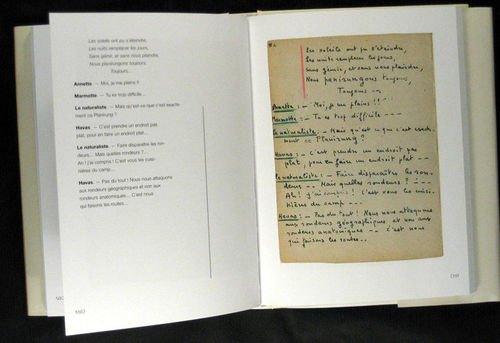 Les soleils ont pu s'éteindre,
Les nuits remplacer les jours,
Sans gémir, et sans nous plaindre,
Nous planirungons toujours
Toujours...
Annette. – Moi, je me plains !!
Marmotte. – Tu es trop difficile...
Le naturaliste. – Mais qu'est-ce que c'est exacte-
ment ce Planirung ?
Havas. – C'est prendre un endroit pas
plat, pour en faire un endroit plat...
Le naturaliste. – Faire disparaître les ron-
deurs... Mais quelles rondeurs ?
Ah ! j'ai compris ! C'est vous les cuisi-
nières du camp...
Havas. – Pas du tout ! Nous nous attaquons
aux rondeurs géographiques et non aux
rondeurs anatomiques... C'est nous
qui faisons les routes...
Les soleils ont pu s'éteindre,
Les nuits remplacer les jours,
Sans gémir, et sans nous plaindre,
Nous planirungons toujours,
Toujours --
Annette : – Moi, je me plains !!
Marmotte : – Tu es trop difficile ---
Le naturaliste : – Mais qu'est ce que c'est exacte-
ment ce Planirung ?
Havas : – c'est prendre un endroit pas
plat, pour en faire un endroit plat --
Le naturaliste : – Faire disparaître les ron-
deurs -- Mais quelles rondeurs ? ---
Ah ! j'ai compris ! C'est vous les cuisi-
nières du camp ---
Havas : – Pas du tout ! Nous nous attaquons
aux rondeurs géographiques, et non aux
rondeurs anatomiques -- c'est nous
qui faisons les routes..